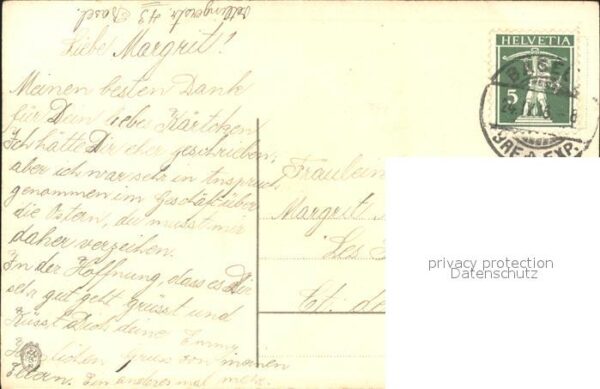 43 Basel.
Liebe Margrit!
Meinen besten Dank
für Dein liebes Kärtchen
Ich hätte Dir eher geschrieben,
aber ich war sehr in Anspruch
genommen im Geschäft über
die Ostern, du musst mir
daher verzeihen.
In der Hoffnung, dass es Dir
sehr gut geht grüsst und
Küsst Dich deine Emmy
Herzlichen Gruss von meinen
Eltern. Ein anderes mal mehr.
HELVETIA
5
BASEL
EXP.
Fräulein
Margrit
Les
Ct. de
privacy protection
Datenschutz